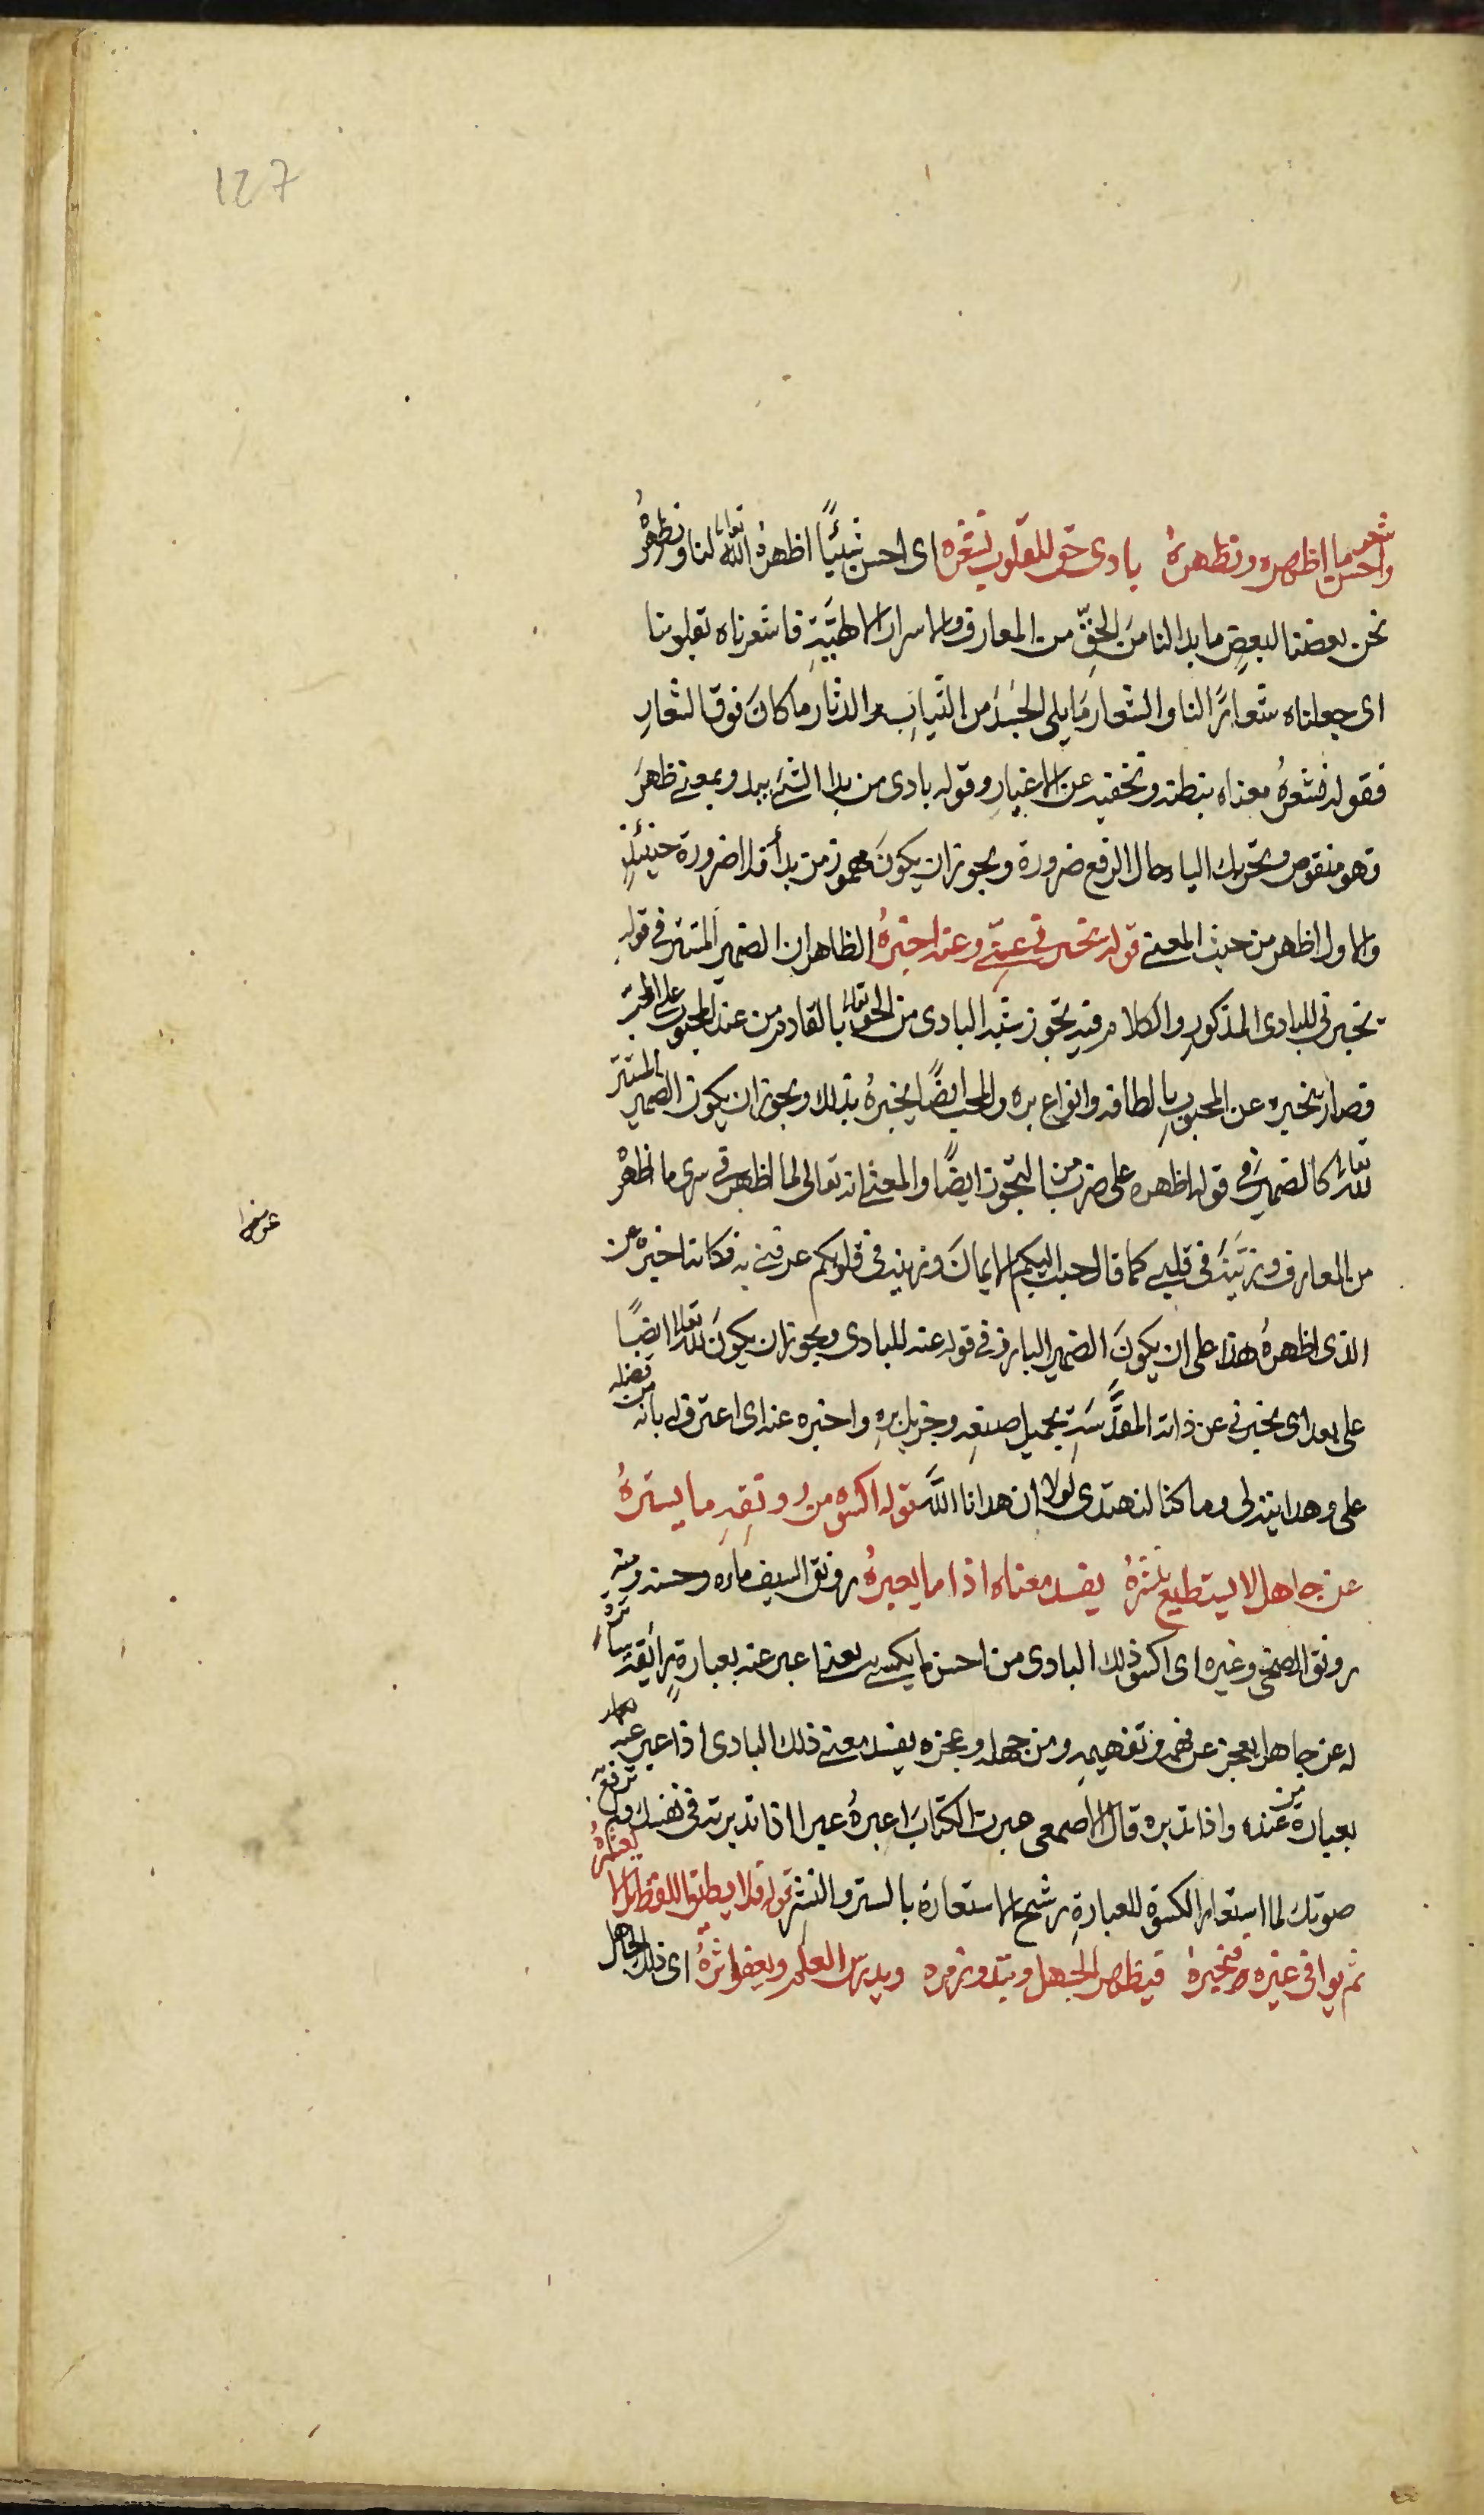 127
شعر
واحسن ما اظهره ونظهره بادى حق للقلوب نشعره اى احسن شيئًا اظهره الله تعالى لنا ونظهرهُ
نحن بعضنا لبعضٍ ما بدا لنا منَ الحقِّ من المعارف والاسرار الالهيَّةِ فاشعرناه بقلوبنا
اى جعلناه شعارًا لنا والشعار مَا يلى الجَسَدَ من الثيابِ والدثار ما كانَ فوق الشعارِ
فقوله نشعرُهُ معناه نبطنه ونخفيه عن الاغيارِ وقوله بادى من بدا الشئ يبدو بمعنى ظهرَ
وهو منقوص وتحريك الياء حال الرفع ضرورة ويجوز ان يكونَ مهموز من بدأ فلا ضرورة حينئذٍ
والاول اظهر من حيث المعنى قوله يخبرنى عنى وعنه اخبرهُ الظاهر ان الضمير المستتر فى قوله
يخبرنى للبادى المذكورِ والكلام فيه تجوز شبه البادى من الحق تعالى بالقادم من عند المحبوب على المحب
فصار يخبره عن المحبوبِ بالطافه وانواع بره والمحب ايضًا يخبرهُ بذلك ويجوز ان يكون الضمير المستتر
لله تعالى كالضمير فى قوله اظهره على ضرب من التجوز ايضًا والمعنى انه تعالى لما اظهر فى سرى ما اظهرْ
من المعارف وزيَّنَه فى قلبى كما قال حبب اليكم الايمانَ وزينه فى قلوبكم عرفنى به فكانه اخبره عن
الذى اظهرهُ هذا على ان يكونَ الضمير البارز فى قوله عنه للبادى ويجوز ان يكونَ لله تعالى ايضًا
على بعد اى يخبرنى عن ذاته المقدَّسَةِ بجميل صنعِه وجزيل برهِ واخبره عنه اى اعترف له بانه من فضله
على وهدايته لى وما كنا لنهتدى لولا ان هدانا اللَّه قوله اكسوه من رونقِهِ ما يسترهُ
عن جاهل لا يستطيع ينشرهُ يفسد معناه اذا ما يعبرهُ رونق السيف ماءه وحسنه ومنه
رونق الضحى وغيره اى اكسو ذلك البادى من احسن ما يكسى يعنى اعبر عنه بعبارةٍ رائقة ساترة
له عن جاهل يعجز عن فهمه وتفهيمهِ ومن جهله وعجزه يفسد معنى ذلك البادى اذا عبر عنه
بعبارة من عنده واذا تدبره قال الاصمعى عبرت الكتابَ اعبرهُ عبرا اذا تدبرته فى نفسك ولم ترفع به
صوتك لما استعار الكسوة للعبارةِ رشح الاستعارة بالستر والنشر قوله فلا يطيق اللفظ بل لا
ثم يوافى غيره فيخبرهُ فيظهر الجهل وتبدو زمره ويدرس العلم ويعفو اثرُهُ اى ذلك الجاهل